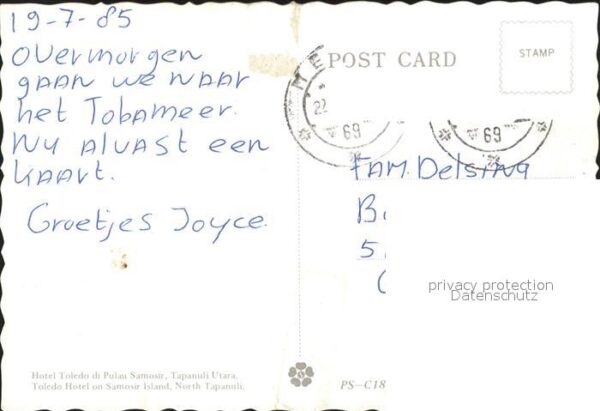 19-7-85
Overmorgen
gaan we naar
het Tobameer.
Nu alvast een
kaart.
Groetjes Joyce.
POST CARD
STAMP
ME
22
69
69
FAM. Delsing
B
5
privacy protection
Datenschutz
Hotel Toledo di Pulau Samosir, Tapanuli Utara.
Toledo Hotel on Samosir Island, North Tapanuli.
PS-C18